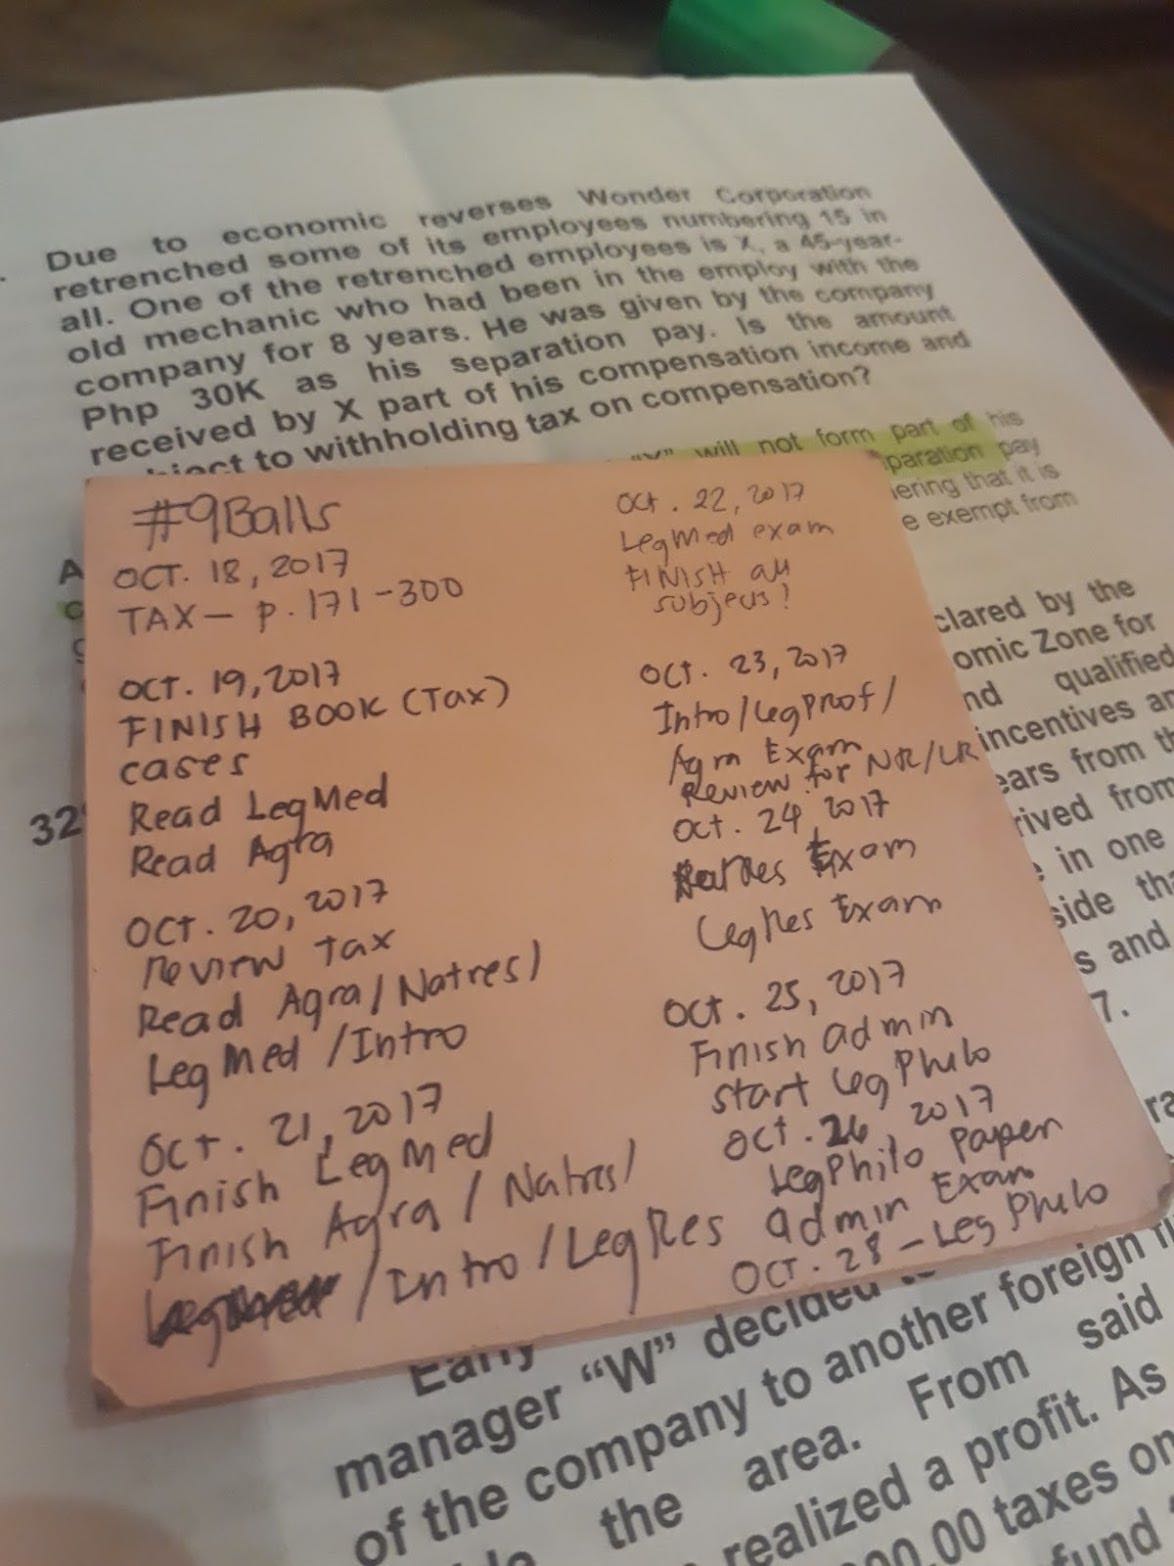 Due to economic reverses Wonder Corporation
retrenched some of its employees numbering 15 in
all. One of the retrenched employees is X, a 45-year-
old mechanic who had been in the employ with the
company for 8 years. He was given by the company
Php 30K as his separation pay. Is the amount
received by X part of his compensation income and
to withholding tax on compensation?
"X" will not form part of his
pay
that it is
exempt from
#9Balls
OCT. 18, 2017
TAX - p. 171-300
OCT. 19, 2017
FINISH BOOK (Tax)
cases
Read LegMed
Read Agra
OCT. 20, 2017
Review Tax
Read Agra/Natres/
Leg Med/Intro
OCT. 21, 2017
Finish Leg Med
Finish Agra/Natres/
/Intro/LegRes
Oct. 22, 2017
LegMed exam
FINISH all
subjects!
Oct. 23, 2017
Intro/LegProf/
Agra Exam
Review for NR/LR
Oct. 24, 2017
Exam
LegRes Exam
Oct. 25, 2017
Finish admin
start LegPhilo
Oct. 26, 2017
LegPhilo Paper
admin Exam
Oct. 28 - Leg Philo
clared by the
omic Zone for
nd qualified
incentives
ears from
rived from
in one
side
s and
7.
32
Early
manager "W" decided
of the company to another foreign
the area. From said
realized a profit. As
00.00 taxes on
fund